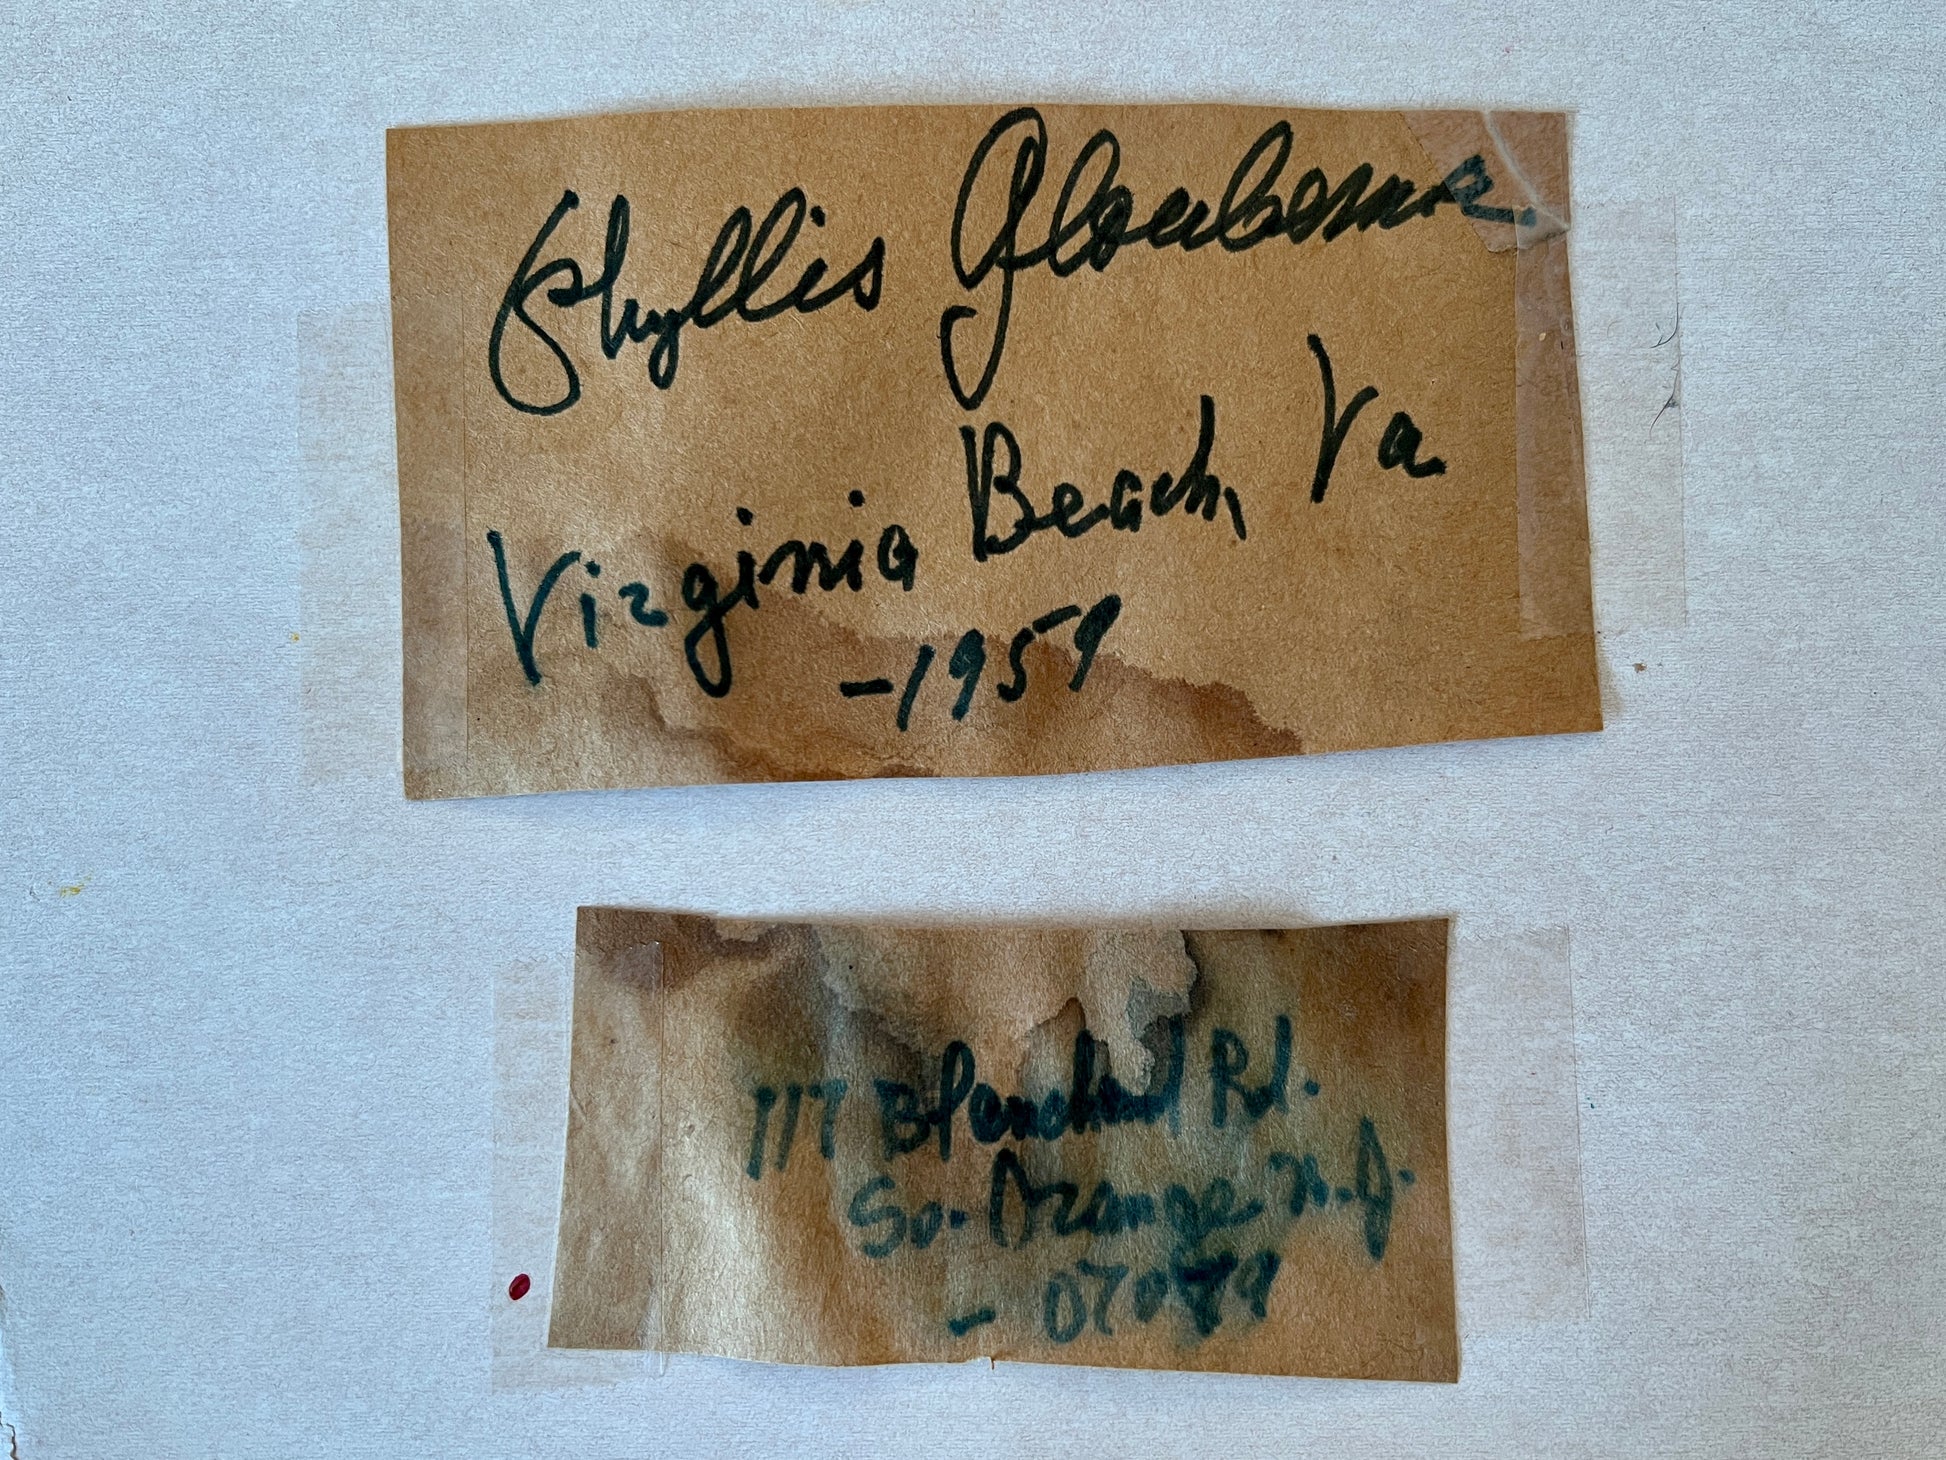 Phyllis
Virginia Beach, Va
-1959
117 Blanchard Rd.
So. Orange N.J.
- 07079